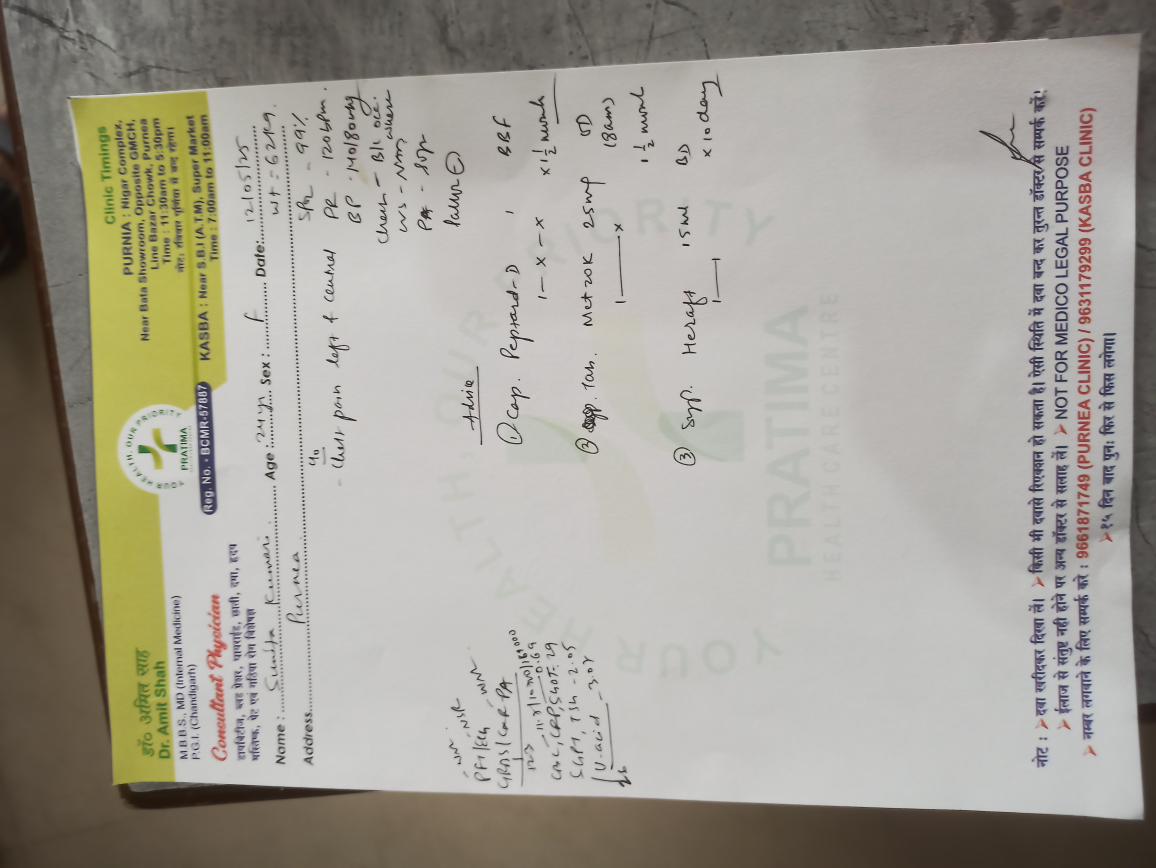 डॉ० अमित साह
Dr. Amit Shah
M.B.B.S., MD (Internal Medicine)
P.G.I. (Chandigarh)
Consultant Physician
डायबिटीज, ब्लड प्रेशर, थायराईड, छाती, दमा, हृदय
मस्तिष्क, पेट एवं गठिया रोग विशेषज्ञ
YOUR HEALTH, OUR PRIORITY
PRATIMA
Reg. No. - BCMR-57887
Clinic Timings
PURNIA : Nigar Complex,
Near Bata Showroom, Opposite GMCH,
Line Bazar Chowk, Purnea
Time : 11:30am to 5:30pm
नोट: रविवार पूर्णिया में बन्द रहेगा।
KASBA : Near S.B.I (A.T.M), Super Market
Time : 7:00am to 11:00am
Name : Sunita Kumari Age : 24 yr Sex : F Date: 12/05/25
Address Purnea wt = 62 kg
c/o
- Chest pain left & central
SPO2 - 99%
PR - 120 bpm.
BP - 140/80 mmHg
Chest - B/L
PA - soft
Advice
① Cap. Peptard-D 1 BBF
1 - x - x x 1½ month
② Tab. Metzok 25mg OD
(8am)
1 x 1½ month
③ Syp. Heraft 15ml BD
1 1 x 10 day
PFT/ECG - NSR
CBC, CRP, SGOT - 29
SGPT, TSH - 2.05
U. acid - 3.02
YOUR HEALTH, OUR PRIORITY
PRATIMA
HEALTHCARE CENTRE
नोट : ➤ दवा खरीदकर दिखा लें। ➤ किसी भी दवासे रिएक्शन हो सकता है। ऐसी स्थिति में दवा बन्द कर तुरन्त डॉक्टर से सम्पर्क करें।
➤ ईलाज से संतुष्ट नही होने पर अन्य डॉक्टर से सलाह लें। ➤ NOT FOR MEDICO LEGAL PURPOSE
➤ नम्बर लगवाने के लिए सम्पर्क करे : 9661871749 (PURNEA CLINIC) / 9631179299 (KASBA CLINIC)
➤ १५ दिन बाद पुनः फिर से फिस लगेगा।